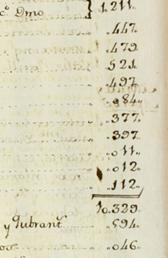 c.º Dmo 1.211.
.447.
.479.
.521.
.497.
.984.
.377.
.397.
.011.
.012.
.112.
10.329.
y qubrant.ˢ .594.
.046.